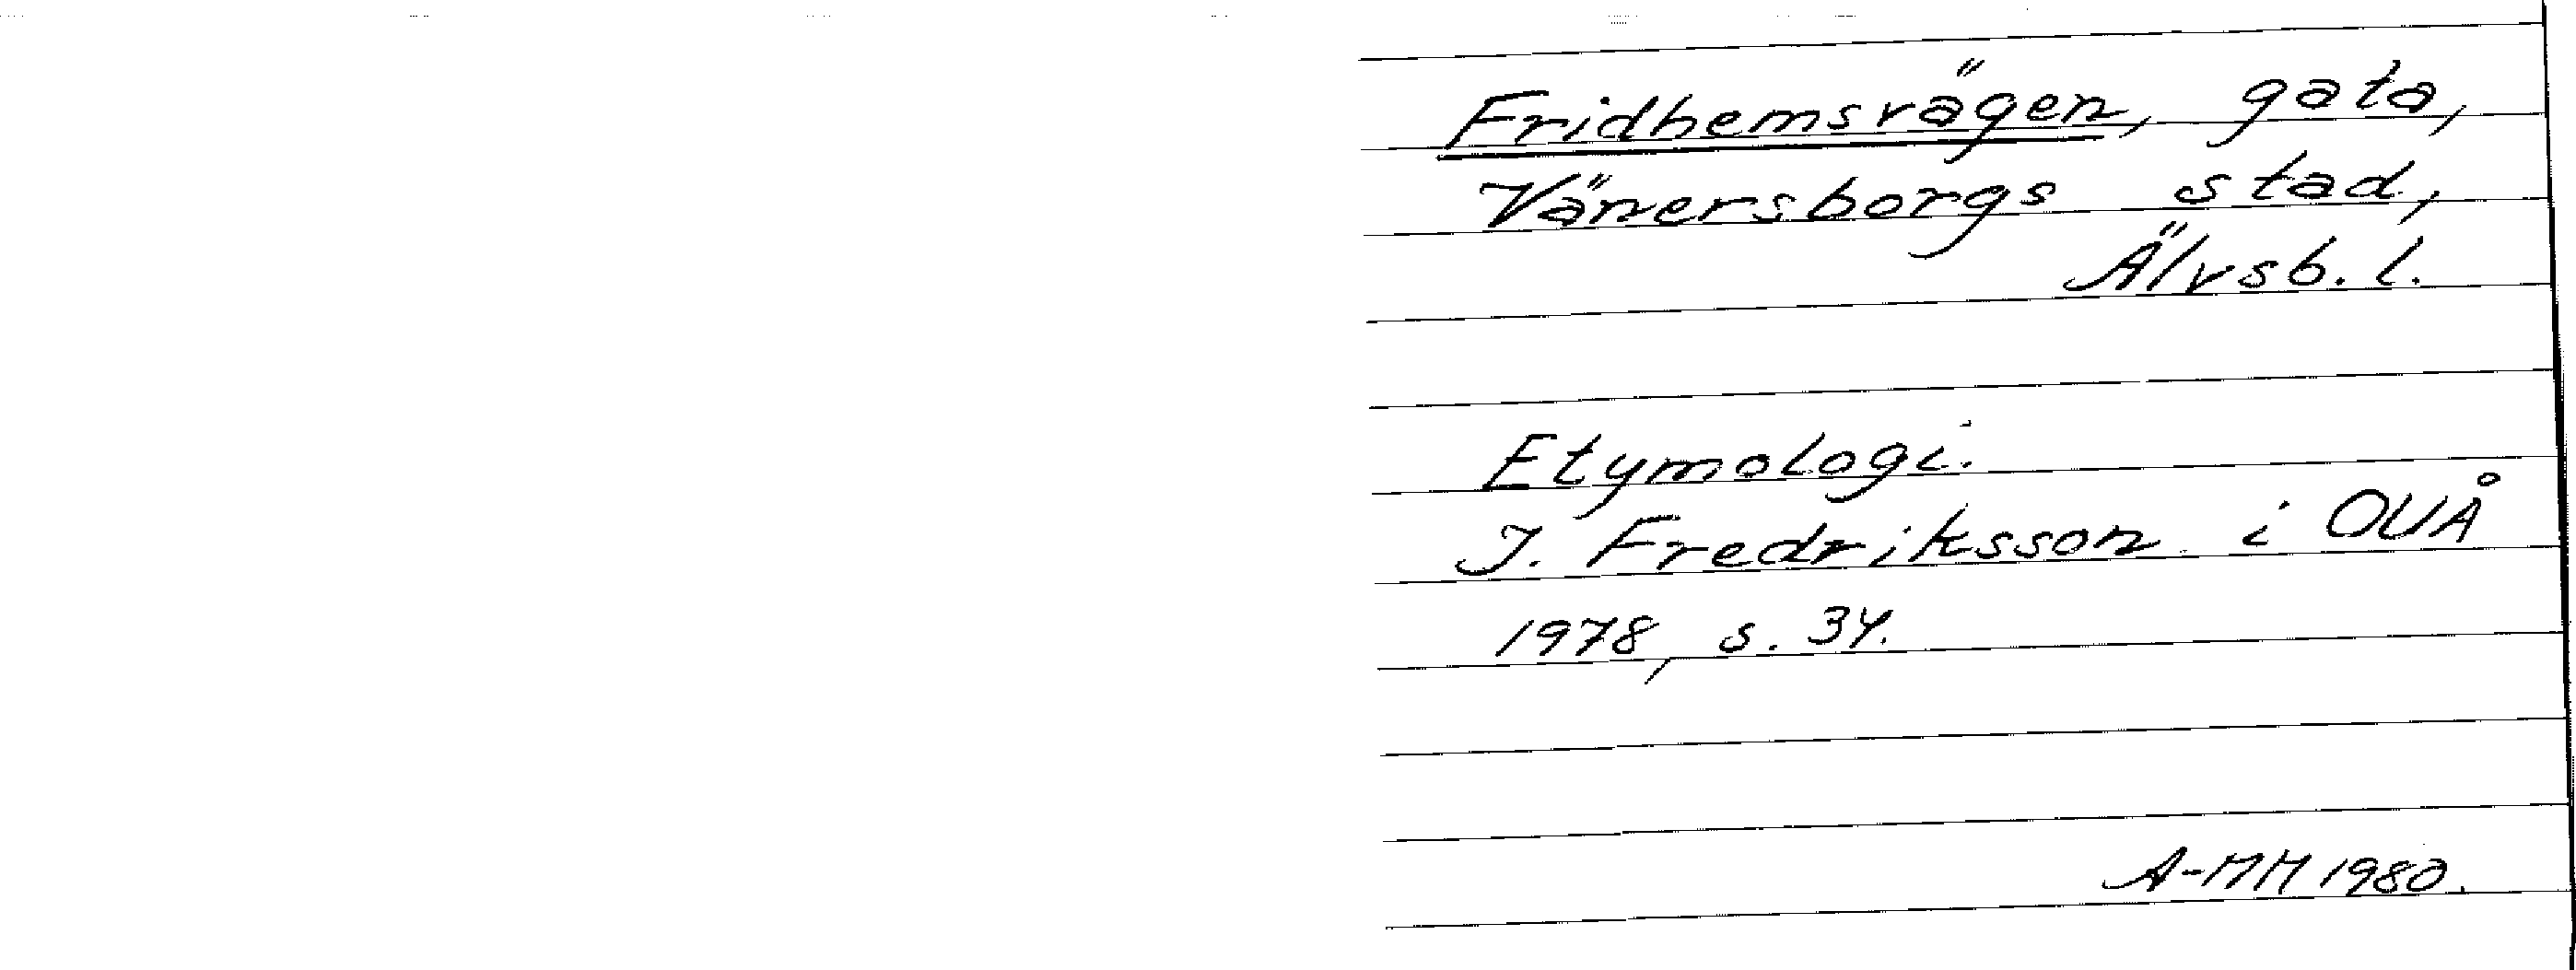 Fridhemsvägen, gata,
Vänersborgs stad,
Älvsb. l.
Etymologi.
I. Fredriksson i OUÅ
1978, s. 34.
A-MM 1980.